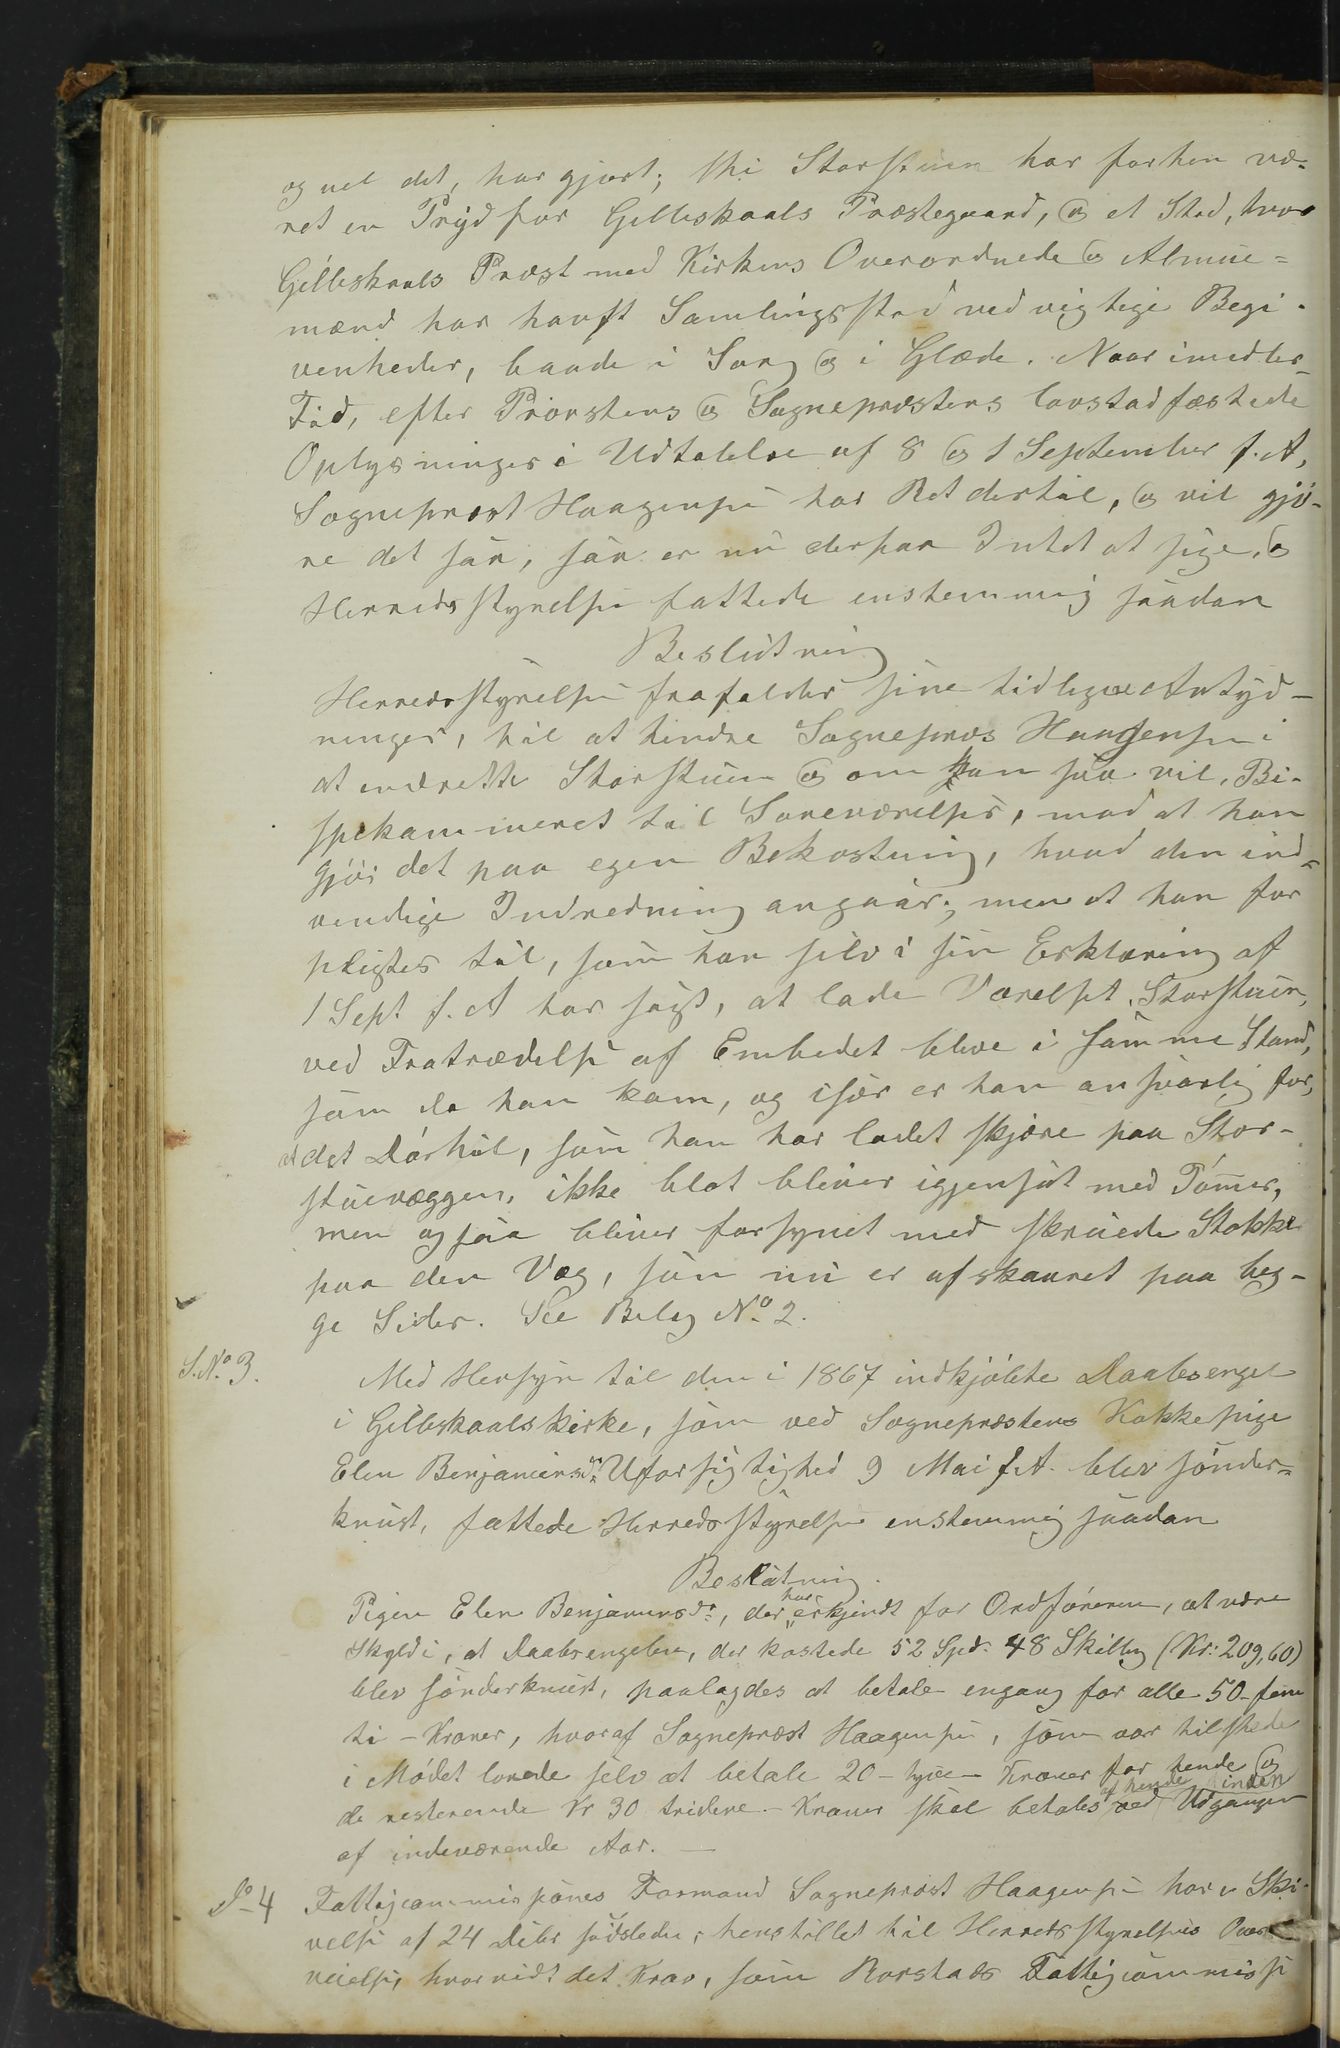 og vel det, har gjort; thi Storstuen har forhen væ-
ret en Pryd for Gilleskaals Præstegaard, og et Sted, hvor
Gilleskaals Præst med Kirkens Overordnede og Almue-
mænd har havft Samlingssted ved vigtige Begi-
venheder, baade i Sorg og i Glæde. Naar imedler-
Tid, efter Provstens og Sognepræstens lovstadfæstede
Oplysninger i Udtalelse af 8 og 1 September f. A,
Sogneprest Haagensen har Ret dertil, og vil gjö-
re det saa, saa er nu derpaa Intet at sige, og
Herredsstyrelsen fattede enstemmig saadan
Beslutning
Herredsstyrelsen frafalder sine tidligere Antyd-
ninger, til at hindre Sognepræs Haagensen i
at indrette Storstuen og om han saa vil, Bi-
spekammeret til Soveværelser, mod at han
gjör det paa egen Bekostning, hvad den ind-
vendige Indredning angaar; men at han for
pligtes til, som han selv i sin Erklæring af
1 Sept. f. A har sagt, at lade Værelset, Storstuen,
ved Fratrædelse af Embedet blive i samme Stand,
som da han kom, og især er han ansvarlig for,
at det Dörhül, som han har ladet skjære paa Stor-
stuevæggen, ikke blot bliver igjensat med Tömmer,
men ogsaa bliver forsynet med skruede Stokke
paa den Væg, som nu er afskaaret paa beg-
ge Sider. See Bilag No 2.
S. No 3.
Med Hensyn til den i 1867 indkjöbte Daabsengel
i Gilleskaals kirke, som ved Sognepræstens Kokkepige
Elen Benjaminsdr Uforsigtighed 9 Mai f. A. blev sönder-
knust, fattede Herredsstyrelsen enstemmig saadan
Beslutning.
Pigen Elen Benjaminsdr, der har erkjendt for Ordföreren, at være
Skyld i, at Daabsengelen, der kostede 52 Spd. 48 Skilling (Kr: 209,60)
blev sönderknust, paalagdes at betale engang for alle 50 - fem
ti - Kroner, hvoraf Sogneprest Haagensen, som var tilstede
i Mödet lovede selv at betale 20 - tyve - Kroner for hende og
de resterende Kr 30 tridive - Kroner skal betales af hende ved inden Udgangen
af indeværende Aar. -
Do 4
Fattigcommissiones Formand Sogneprest Haagensen har i Skri-
velse af 24 Debr sidstleden, henstillet til Herredsstyrelsens Over
veielse, hvorvidt det Krav, som Rorstads Fattigcommissi